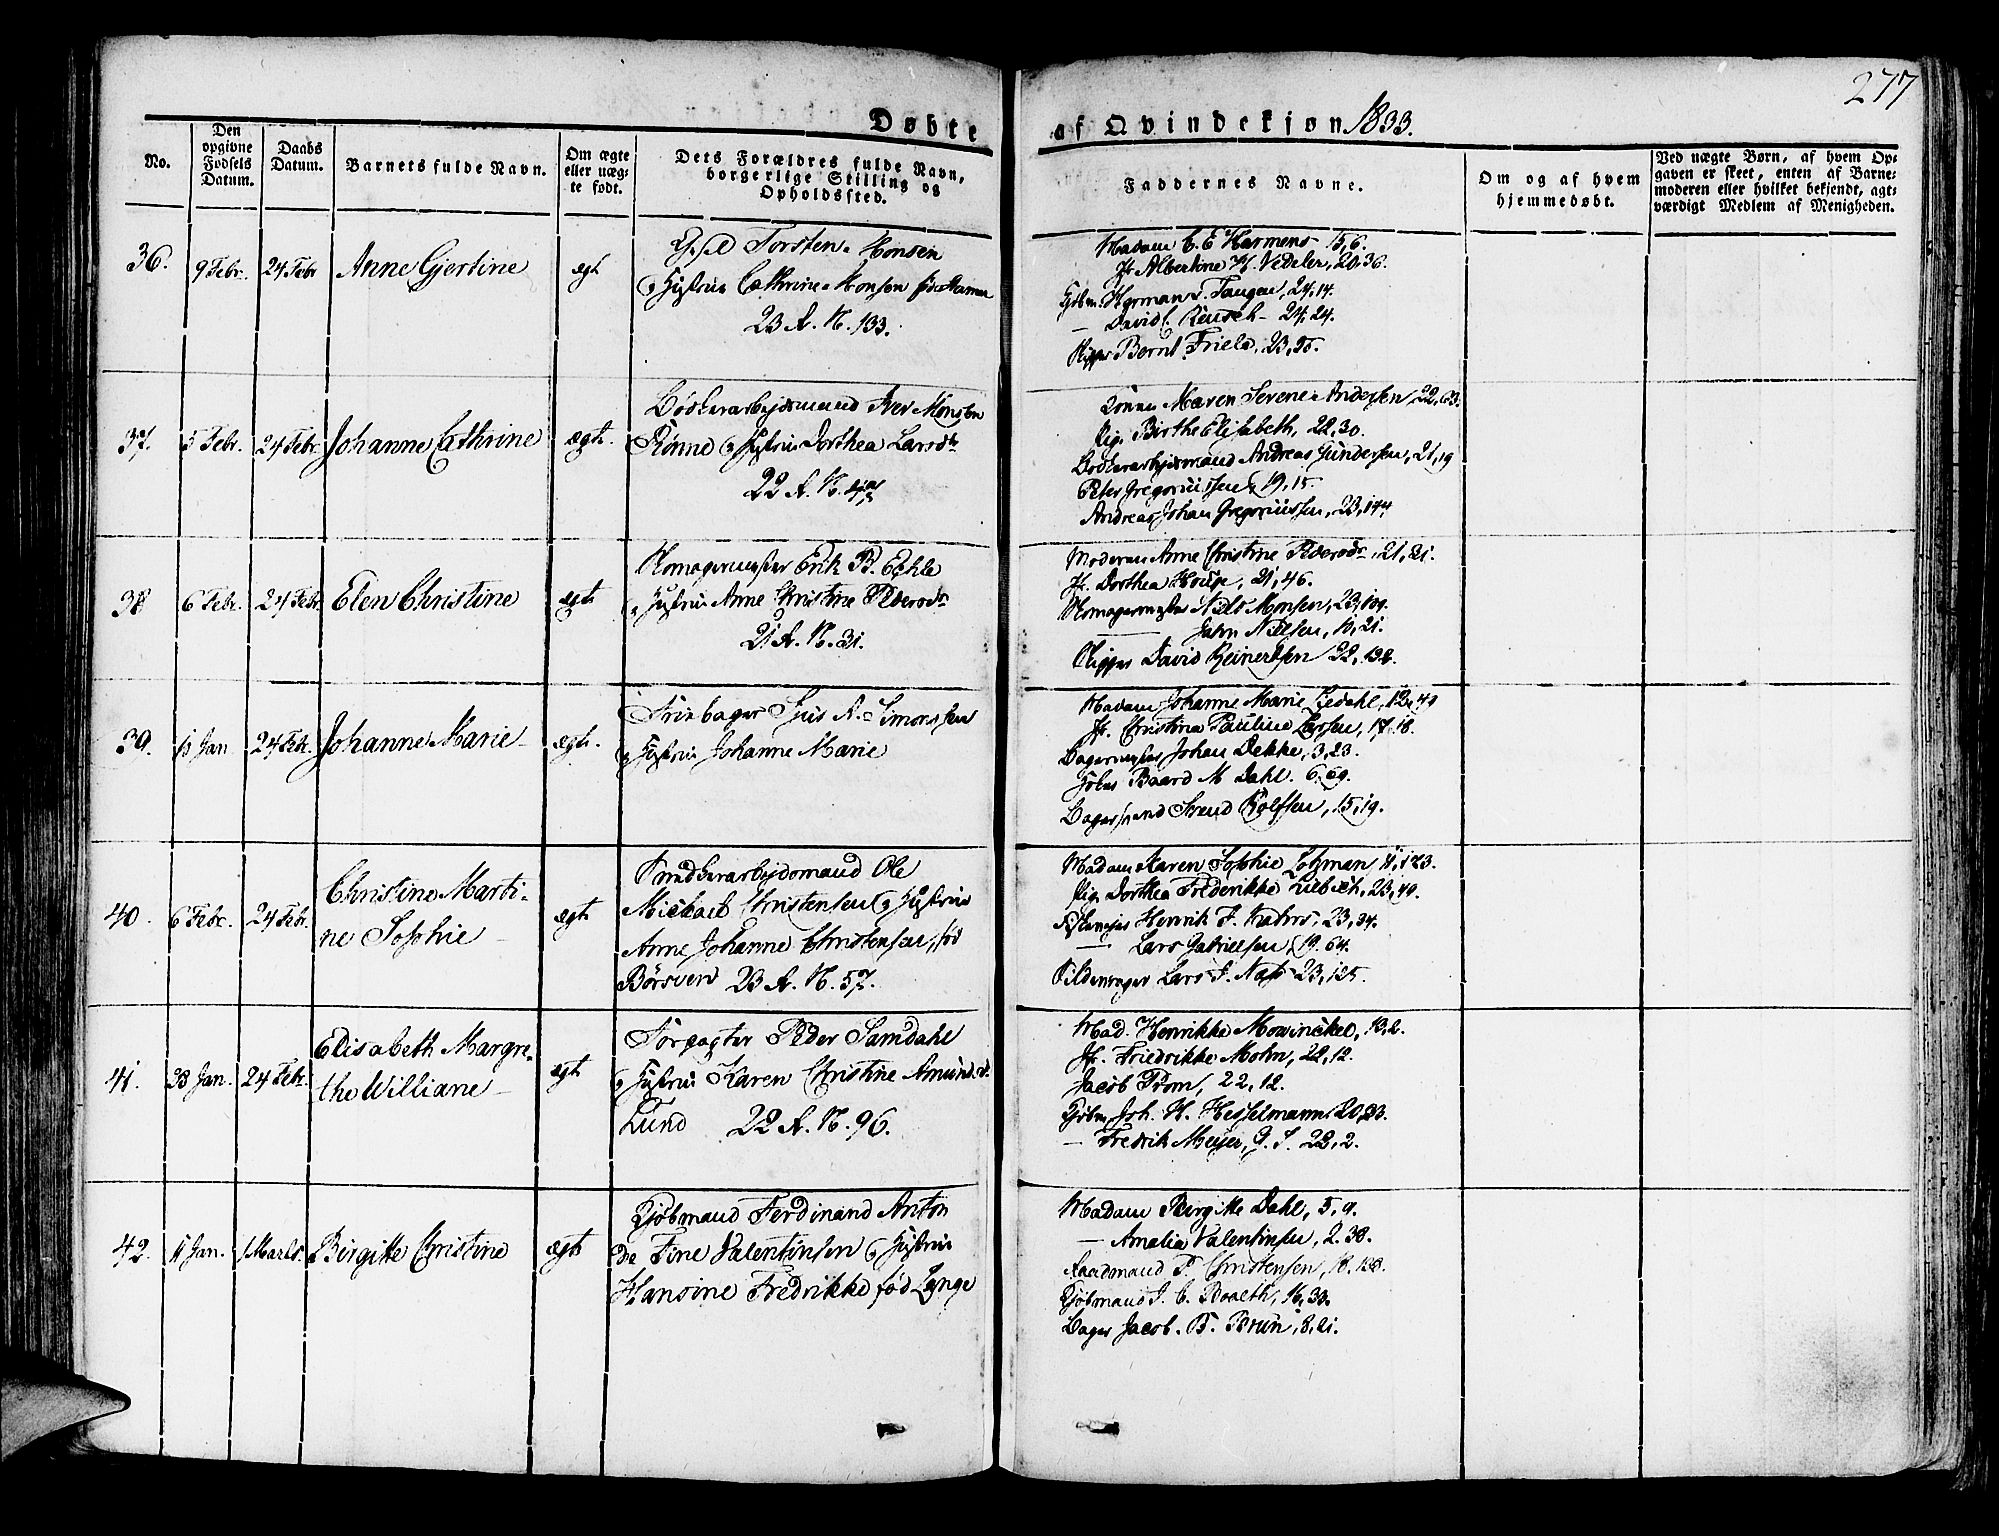 277
Døbte af Qvindekjøn 1833.
No.
Den opgivne Fødsels Datum.
Daabs Datum.
Barnets fulde Navn.
Om ægte eller uægte født.
Dets Forældres fulde Navn, borgerlige Stilling og Opholdssted.
Faddernes Navne.
Om og af hvem hjemmedøbt.
Ved uægte Børn, af hvem Opgaven er skeet, enten af Barnemoderen eller hvilket bekjendt, agtværdigt Medlem af Menigheden.
36. 9 Febr. 24 Febr Anne Gjertine ægt
Torsten Monsen
Hustrue Cathrine Monsen
23 A. N. 133.
Madam C. E Harmens 15,6.
Jf. Albertine H. Vedeler, 20,36.
Kjøbm. Herman v. Tangen, 24,14.
— David C. Reusch 24,24.
Skipper Bernt Friele, 23,
37. 5 Febr. 24 Febr. Johanne Cathrine ægte.
Bødkerarbejdsmand Iver Monsen
Rønne og Hustrue Dorthea Larsdr
22 A. N.
Konen Maren Serene Andersen, 22,63.
Pig. Birthe Elisabeth, 22,30.
Bødkerarbejdsmand Andreas Gundersen, 21,19
Peter Gregoriussen, 19,15.
Andreas Johan Gregoriussen, 23,144
38 6 Febr. 24 Febr. Elen Christine ægte
Skomagermester Erik B. Echle
og Hustrue Anne Christine Pedersdr
21 A. N. 31.
Moderen Anne Christine Pedersdr. 21,21.
Jf. Dorthea Houge, 21,46.
Skomagermester Niels Monsen, 23,109.
John Nielsen, 10,21.
Skipper David Reinertsen 22,132.
39. 10 Jan 24 Feb. Johanne Marie ægte.
A. Simonsen
og Hustrue Johanne Marie
Madam Johanne Marie Liedahl, 12,49
Jf. Christine Pauline Larsen, 17,18.
Bagermester Johan Dekke, 3,23.
Baard M Dahl. 6,69.
Bagersvend Svend Rolfsen, 15,19.
40. 6 Febr. 24 Febr. Christine Martine Sophie ægte
Snedkerarbejdsmand Ole
Michael Christensen og Hustrue
Anne Johanne Christensen, fød
Børsven 23 A. N. 57.
Madam Karen Sophie Lohman 11,123.
Pig. Dorthea Frederikke Liebich, 23,49.
Henrik F. Frahns, 23,34.
— Lars Gabrielsen, 19. 64.
Sildevrager Lars I. Nass 23,125.
41. 23 Jan. 24 Febr. Elisabeth Margrethe Williane ægt
Peder Samdahl
og Hustrue Karen Christine Amundsd.
Lund 22 A. N. 96.
Mad. Henrikke Mowinckel, 13,2.
Jf. Friedrikke Mohn, 22,12.
Jacob Prom, 22,12.
Kjøbm. Joh. H. Hesselmann 20,23.
— Fredrik Meyer, G. S. 22,2.
42. 11 Jan. 1 Marts. Birgitte Christine ægte
Kjøbmand Ferdinand Anton
de Fine Valentinsen og Hustrue
Hansine Fredrikke fød Lynge
Madam Birgitte Dahl, 5,9.
— Amalia Valentinsen, 2.38.
Raadmand P. Christensen, 18,128.
Kjøbmand J. C. Boaeth, 16,33.
Bager Jacob. B. Brun, 8,21.